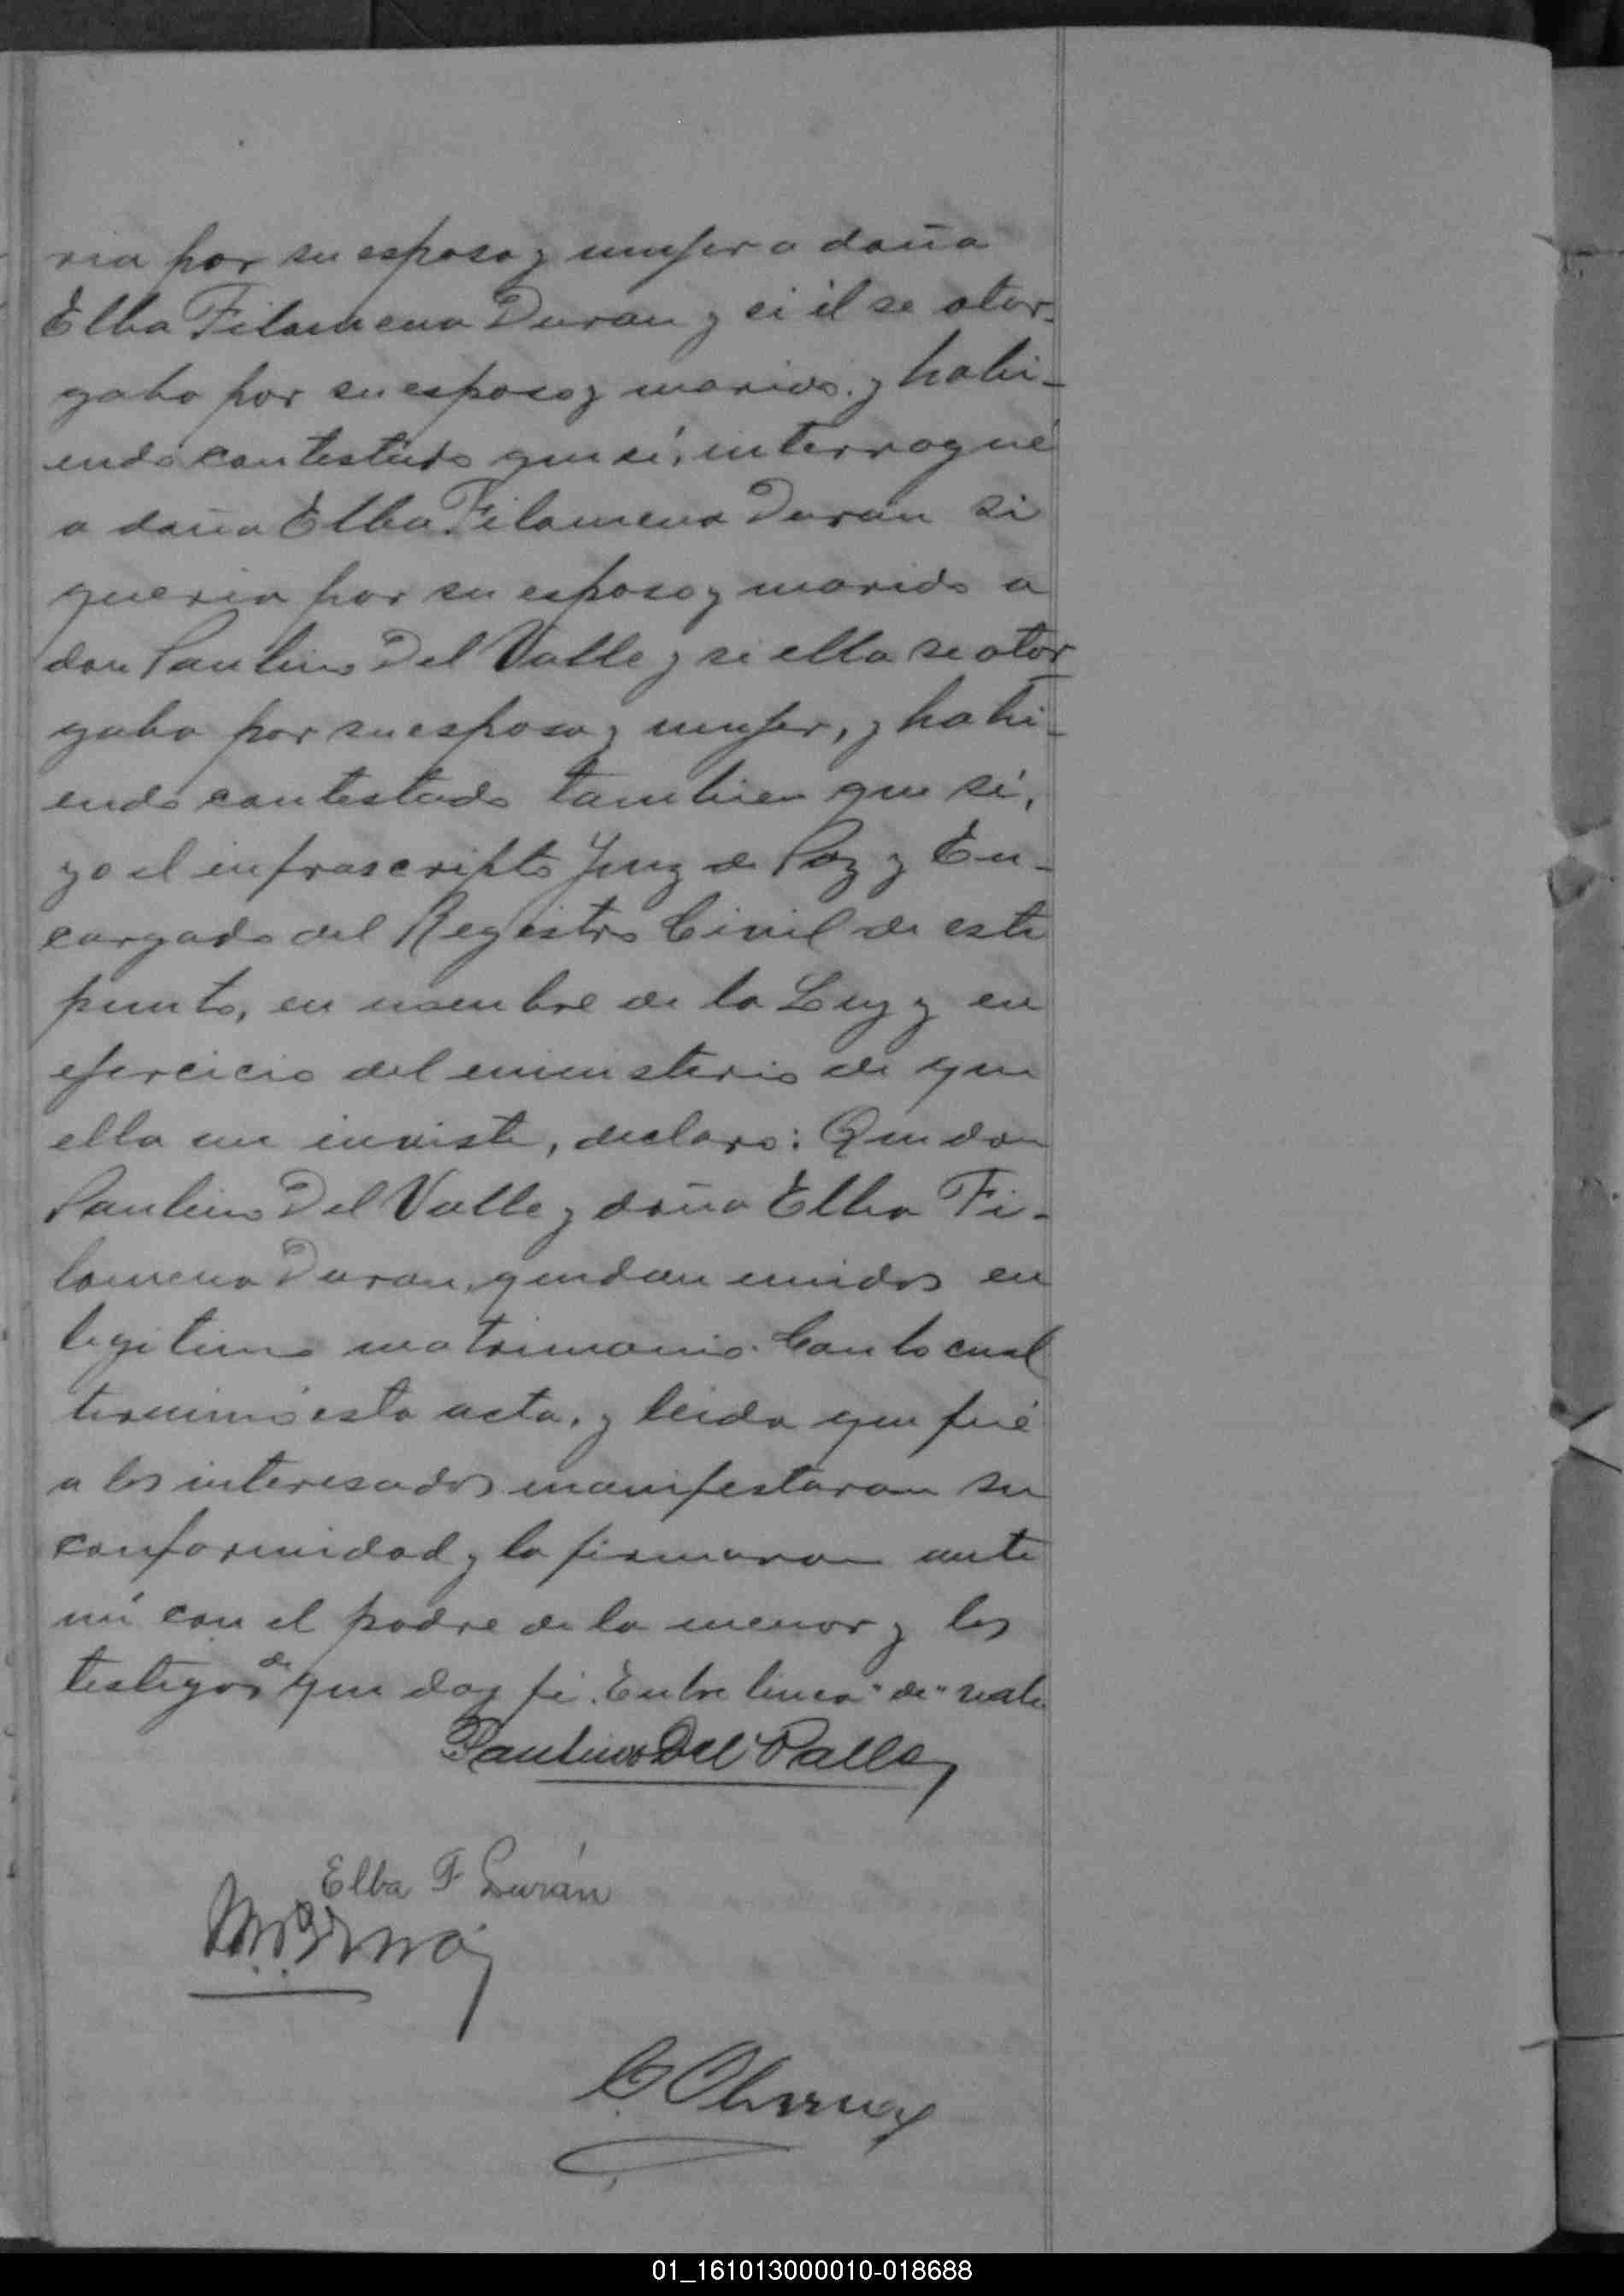 ria por su esposa y mujer a doña
Elba Filomena Duran y si él se otor-
gaba por su esposo y marido, y habi-
endo contestado que sí, interrogué
a doña Elba Filomena Duran si
queria por su esposo y marido a
don Paulino Del Valle y si ella se otor
gaba por su esposa y mujer, y habi-
endo contestado tambien que sí,
yo el infrascripto Juez de Paz y En-
cargado del Registro Civil de este
punto, en nombre de la Ley y en
ejercicio del ministerio de que
ella me inviste, declaro: Que don
Paulino Del Valle y doña Elba Fi-
lomena Duran, quedan unidos en
legitimo matrimonio. Con lo cual
terminó esta acta, y leida que fué
a los interesados manifestaron su
conformidad y la firmaron ante
mí con el padre de la menor y los
testigos de que doy fé. Entre linea "de" vale
Paulino Del Valle
Elba F Durán